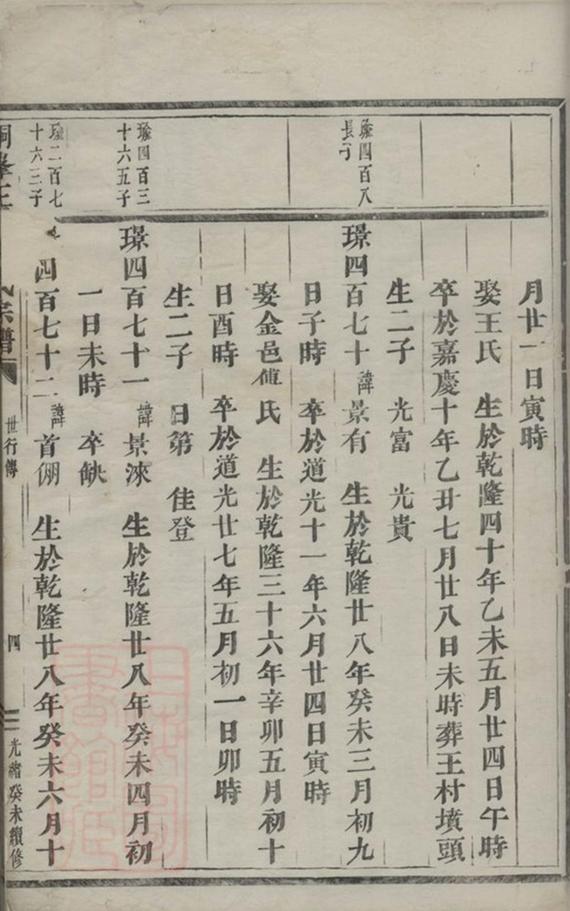 月廿一日寅時
娶王氏　生於乾隆四十年乙未五月廿四日午時
卒於嘉慶十年乙丑七月廿八日未時葬王村墳頭
生二子　光富　光貴
璟四百八
長子
璟四百七十　諱景有　生於乾隆廿八年癸未三月初九
日子時　卒於道光十一年六月廿四日寅時
娶金邑傅氏　生於乾隆三十六年辛卯五月初十
日酉時　卒於道光廿七年五月初一日卯時
生二子　日第　佳登
四百三
十六五子
璟四百七十一　諱景淶　生於乾隆廿八年癸未四月初
一日未時　卒缺
二百七
十六三子
四百七十二　諱首倗　生於乾隆廿八年癸未六月十
宗譜　世行傳　四　光緒癸未續修